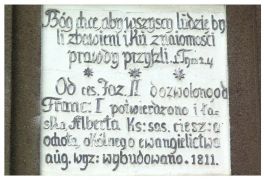 Bóg chce, aby wszyscy ludzie by
li zbawieni i ku znajomości
prawdy przyszli. 1 Tym 2.4
Od ces: Joz. II dozwolono, od
Franc: I potwierdzono i ła-
ską Alberta Ks: sas. ciesz: a
ochotą okólnego ewangielictwa
aug. wyz: wybudowano. 1811.